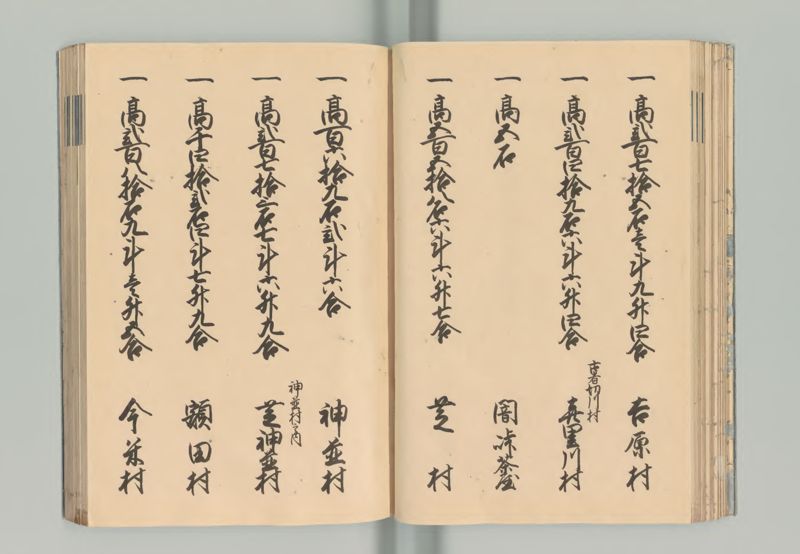 一 高弐百七拾五石壱斗九升四合 吉原村
一 高弐百四拾九石六斗六升四合 古者切川村 喜里川村
一 高五石 闇峠茶屋
一 高五百五拾八石六斗六升七合 芝村
一 高百八拾九石弐斗六合 神並村
一 高弐百七拾三石七斗六升九合 神並村之内 芝神並村
一 高千四拾弐石四斗七升九合 額田村
一 高弐百八拾石九斗壱升五合 今米村